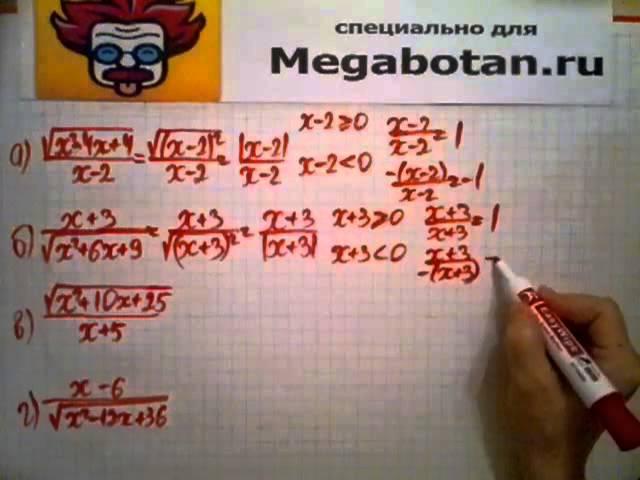 специально для
Megabotan.ru
а) √(x²-4x+4)/(x-2) = √((x-2)²)/(x-2) = |x-2|/(x-2)
x-2≥0 (x-2)/(x-2) = 1
x-2<0 -(x-2)/(x-2) = -1
б) (x+3)/√(x²+6x+9) = (x+3)/√((x+3)²) = (x+3)/|x+3|
x+3≥0 (x+3)/(x+3) = 1
x+3<0 (x+3)/-(x+3) -
в) √(x²+10x+25)/(x+5)
г) (x-6)/√(x²-12x+36)